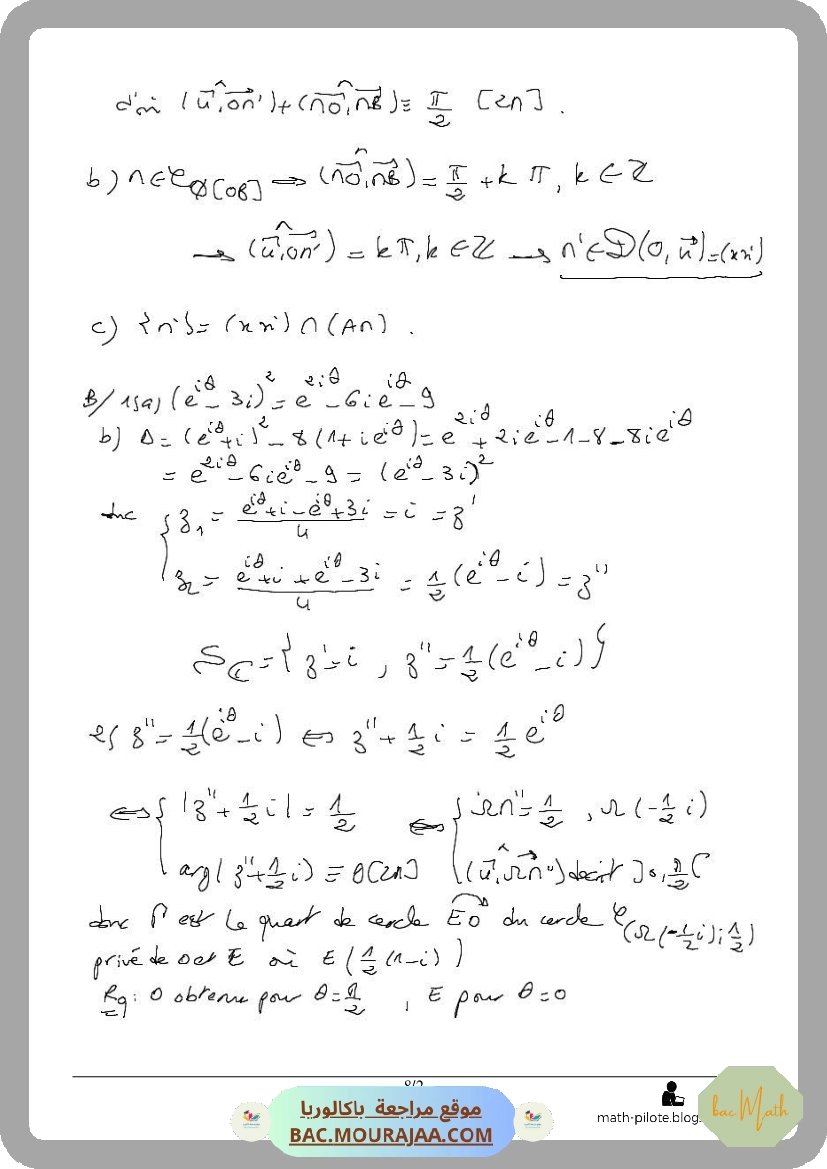 d'où (u⃗, OM'⃗) + (MO⃗, MB⃗) ≡ π/2 [2π].
b) M ∈ 𝒞∅[OB] ⟹ (MO⃗, MB⃗) = π/2 + kπ, k ∈ ℤ
→ (u⃗, OM'⃗) = kπ, k ∈ ℤ → M' ∈ D(O, u⃗) = (xx')
c) {M'} = (xx') ∩ (AM).
B/ 1/a) (e^{iθ} - 3i)² = e^{2iθ} - 6ie^{iθ} - 9
b) Δ = (e^{iθ} + i)² - 8(1 + ie^{iθ}) = e^{2iθ} + 2ie^{iθ} - 1 - 8 - 8ie^{iθ}
= e^{2iθ} - 6ie^{iθ} - 9 = (e^{iθ} - 3i)²
donc { z₁ = (e^{iθ} + i - e^{iθ} + 3i)/4 = i = z'
z₂ = (e^{iθ} + i + e^{iθ} - 3i)/4 = 1/2 (e^{iθ} - i) = z''
S_ℂ = { z' = i , z'' = 1/2 (e^{iθ} - i) }
2/ z'' = 1/2 (e^{iθ} - i) ⟺ z'' + 1/2 i = 1/2 e^{iθ}
⟺ { |z'' + 1/2 i| = 1/2 ⟺ { ΩM'' = 1/2 , Ω(-1/2 i)
arg(z'' + 1/2 i) ≡ θ [2π] (u⃗, ΩM''⃗) décrit ]0, π/2[
donc Γ est le quart de cercle EO du cercle 𝒞(Ω(-1/2 i) ; 1/2)
privé de O et E où E(1/2 (1-i))
Rq : O obtenu pour θ = π/2 , E pour θ = 0
math-pilote.blog.
bac Math
موقع مراجعة باكالوريا
BAC.MOURAJAA.COM